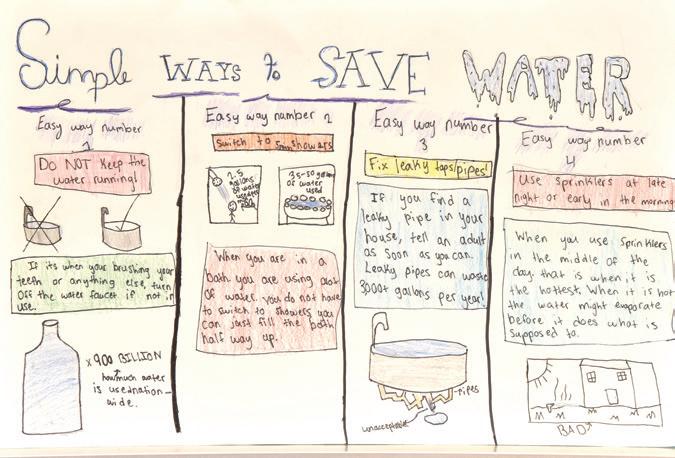 Simple WAYS to SAVE WATER
Easy way number
1
Do NOT Keep the
water running!
If its when your brushing your
teeth or anything else, turn
Off the water faucet if not in
use.
x 900 BILLION
how much water
is used nation-
wide.
Easy way number 2
Switch to 5min showers
2.5
gallons
of water
used
35-50 gallons
of water
used
When you are in a
bath you are using alot
of water. you do not have
to switch to showers you
can just fill the bath
half way up.
Easy way number
3
Fix leaky taps/pipes!
If you find a
leaky pipe in your
house, tell an adult
as soon as you can.
Leaky pipes can waste
3000+ gallons per year!
pipes
unacceptable
Easy way number
4
Use sprinklers at late
night or early in the morning
When you use Sprinklers
in the middle of the
day that is when it is
the hottest. When it is hot
the water might evaporate
before it does what is
supposed to.
BAD